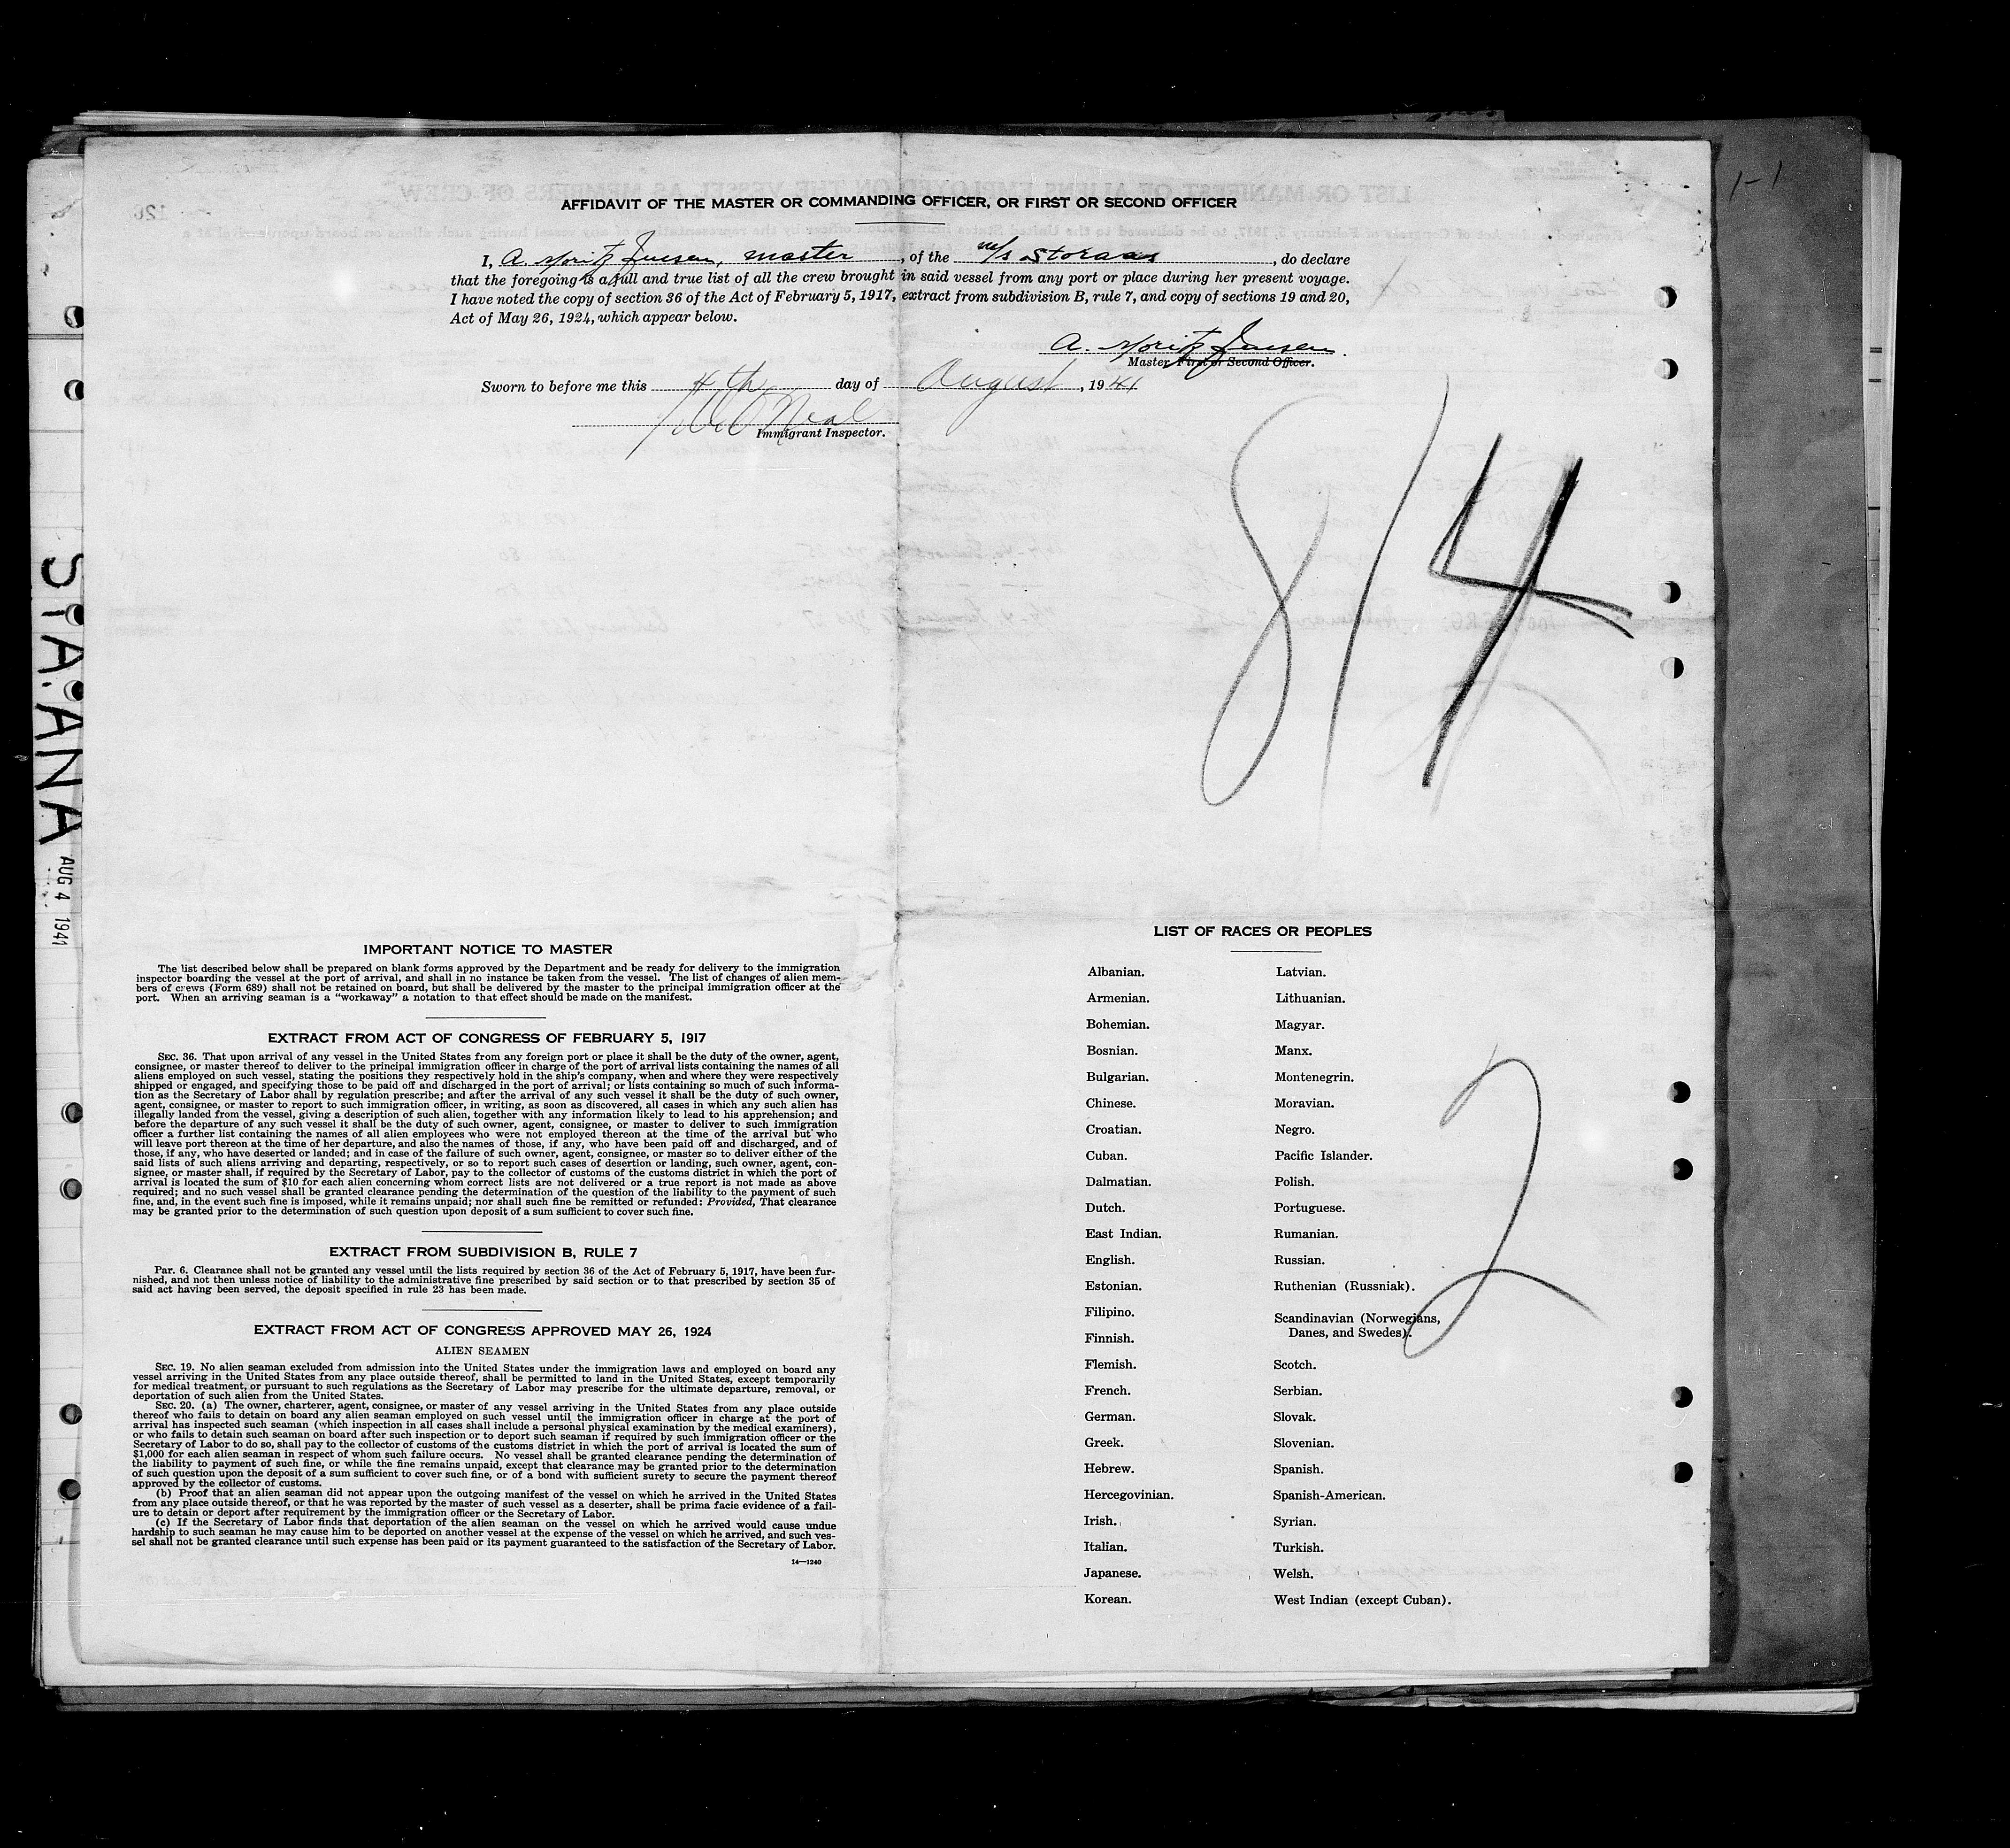 AFFIDAVIT OF THE MASTER OR COMMANDING OFFICER, OR FIRST OR SECOND OFFICER
I, A. Moritz Jensen, master, of the m/s Storaas, do declare
that the foregoing is a full and true list of all the crew brought in said vessel from any port or place during her present voyage.
I have noted the copy of section 36 of the Act of February 5, 1917, extract from subdivision B, rule 7, and copy of sections 19 and 20,
Act of May 26, 1924, which appear below.
A. Moritz Jensen.
Master First or Second Officer.
Sworn to before me this 4th day of August, 1941
O'Neal
Immigrant Inspector.
8/4
STA. ANA
AUG 4 1941
1-1
IMPORTANT NOTICE TO MASTER
The list described below shall be prepared on blank forms approved by the Department and be ready for delivery to the immigration
inspector boarding the vessel at the port of arrival, and shall in no instance be taken from the vessel. The list of changes of alien mem-
bers of crews (Form 689) shall not be retained on board, but shall be delivered by the master to the principal immigration officer at the
port. When an arriving seaman is a "workaway" a notation to that effect should be made on the manifest.
EXTRACT FROM ACT OF CONGRESS OF FEBRUARY 5, 1917
SEC. 36. That upon arrival of any vessel in the United States from any foreign port or place it shall be the duty of the owner, agent,
consignee, or master thereof to deliver to the principal immigration officer in charge of the port of arrival lists containing the names of all
aliens employed on such vessel, stating the positions they respectively hold in the ship's company, when and where they were respectively
shipped or engaged, and specifying those to be paid off and discharged in the port of arrival; or lists containing so much of such informa-
tion as the Secretary of Labor shall by regulation prescribe; and after the arrival of any such vessel it shall be the duty of such owner,
agent, consignee, or master to report to such immigration officer, in writing, as soon as discovered, all cases in which any such alien has
illegally landed from the vessel, giving a description of such alien, together with any information likely to lead to his apprehension; and
before the departure of any such vessel it shall be the duty of such owner, agent, consignee, or master to deliver to such immigration
officer a further list containing the names of all alien employees who were not employed thereon at the time of the arrival but who
will leave port thereon at the time of her departure, and also the names of those, if any, who have been paid off and discharged, and of
those, if any, who have deserted or landed; and in case of the failure of such owner, agent, consignee, or master so to deliver either of the
said lists of such aliens arriving and departing, respectively, or so to report such cases of desertion or landing, such owner, agent, con-
signee, or master shall, if required by the Secretary of Labor, pay to the collector of customs of the customs district in which the port of
arrival is located the sum of $10 for each alien concerning whom correct lists are not delivered or a true report is not made as above
required; and no such vessel shall be granted clearance pending the determination of the question of the liability to the payment of such
fine, and, in the event such fine is imposed, while it remains unpaid; nor shall such fine be remitted or refunded: Provided, That clearance
may be granted prior to the determination of such question upon deposit of a sum sufficient to cover such fine.
EXTRACT FROM SUBDIVISION B, RULE 7
Par. 6. Clearance shall not be granted any vessel until the lists required by section 36 of the Act of February 5, 1917, have been fur-
nished, and not then unless notice of liability to the administrative fine prescribed by said section or to that prescribed by section 35 of
said act having been served, the deposit specified in rule 23 has been made.
EXTRACT FROM ACT OF CONGRESS APPROVED MAY 26, 1924
ALIEN SEAMEN
SEC. 19. No alien seaman excluded from admission into the United States under the immigration laws and employed on board any
vessel arriving in the United States from any place outside thereof, shall be permitted to land in the United States, except temporarily
for medical treatment, or pursuant to such regulations as the Secretary of Labor may prescribe for the ultimate departure, removal, or
deportation of such alien from the United States.
SEC. 20. (a) The owner, charterer, agent, consignee, or master of any vessel arriving in the United States from any place outside
thereof who fails to detain on board any alien seaman employed on such vessel until the immigration officer in charge at the port of
arrival has inspected such seaman (which inspection in all cases shall include a personal physical examination by the medical examiners),
or who fails to detain such seaman on board after such inspection or to deport such seaman if required by such immigration officer or the
Secretary of Labor to do so, shall pay to the collector of customs of the customs district in which the port of arrival is located the sum of
$1,000 for each alien seaman in respect of whom such failure occurs. No vessel shall be granted clearance pending the determination of
the liability to payment of such fine, or while the fine remains unpaid, except that clearance may be granted prior to the determination
of such question upon the deposit of a sum sufficient to cover such fine, or of a bond with sufficient surety to secure the payment thereof
approved by the collector of customs.
(b) Proof that an alien seaman did not appear upon the outgoing manifest of the vessel on which he arrived in the United States
from any place outside thereof, or that he was reported by the master of such vessel as a deserter, shall be prima facie evidence of a fail-
ure to detain or deport after requirement by the immigration officer or the Secretary of Labor.
(c) If the Secretary of Labor finds that deportation of the alien seaman on the vessel on which he arrived would cause undue
hardship to such seaman he may cause him to be deported on another vessel at the expense of the vessel on which he arrived, and such ves-
sel shall not be granted clearance until such expense has been paid or its payment guaranteed to the satisfaction of the Secretary of Labor.
14—1240
LIST OF RACES OR PEOPLES
Albanian.
Armenian.
Bohemian.
Bosnian.
Bulgarian.
Chinese.
Croatian.
Cuban.
Dalmatian.
Dutch.
East Indian.
English.
Estonian.
Filipino.
Finnish.
Flemish.
French.
German.
Greek.
Hebrew.
Hercegovinian.
Irish.
Italian.
Japanese.
Korean.
Latvian.
Lithuanian.
Magyar.
Manx.
Montenegrin.
Moravian.
Negro.
Pacific Islander.
Polish.
Portuguese.
Rumanian.
Russian.
Ruthenian (Russniak).
Scandinavian (Norwegians,
Danes, and Swedes).
Scotch.
Serbian.
Slovak.
Slovenian.
Spanish.
Spanish-American.
Syrian.
Turkish.
Welsh.
West Indian (except Cuban).
2